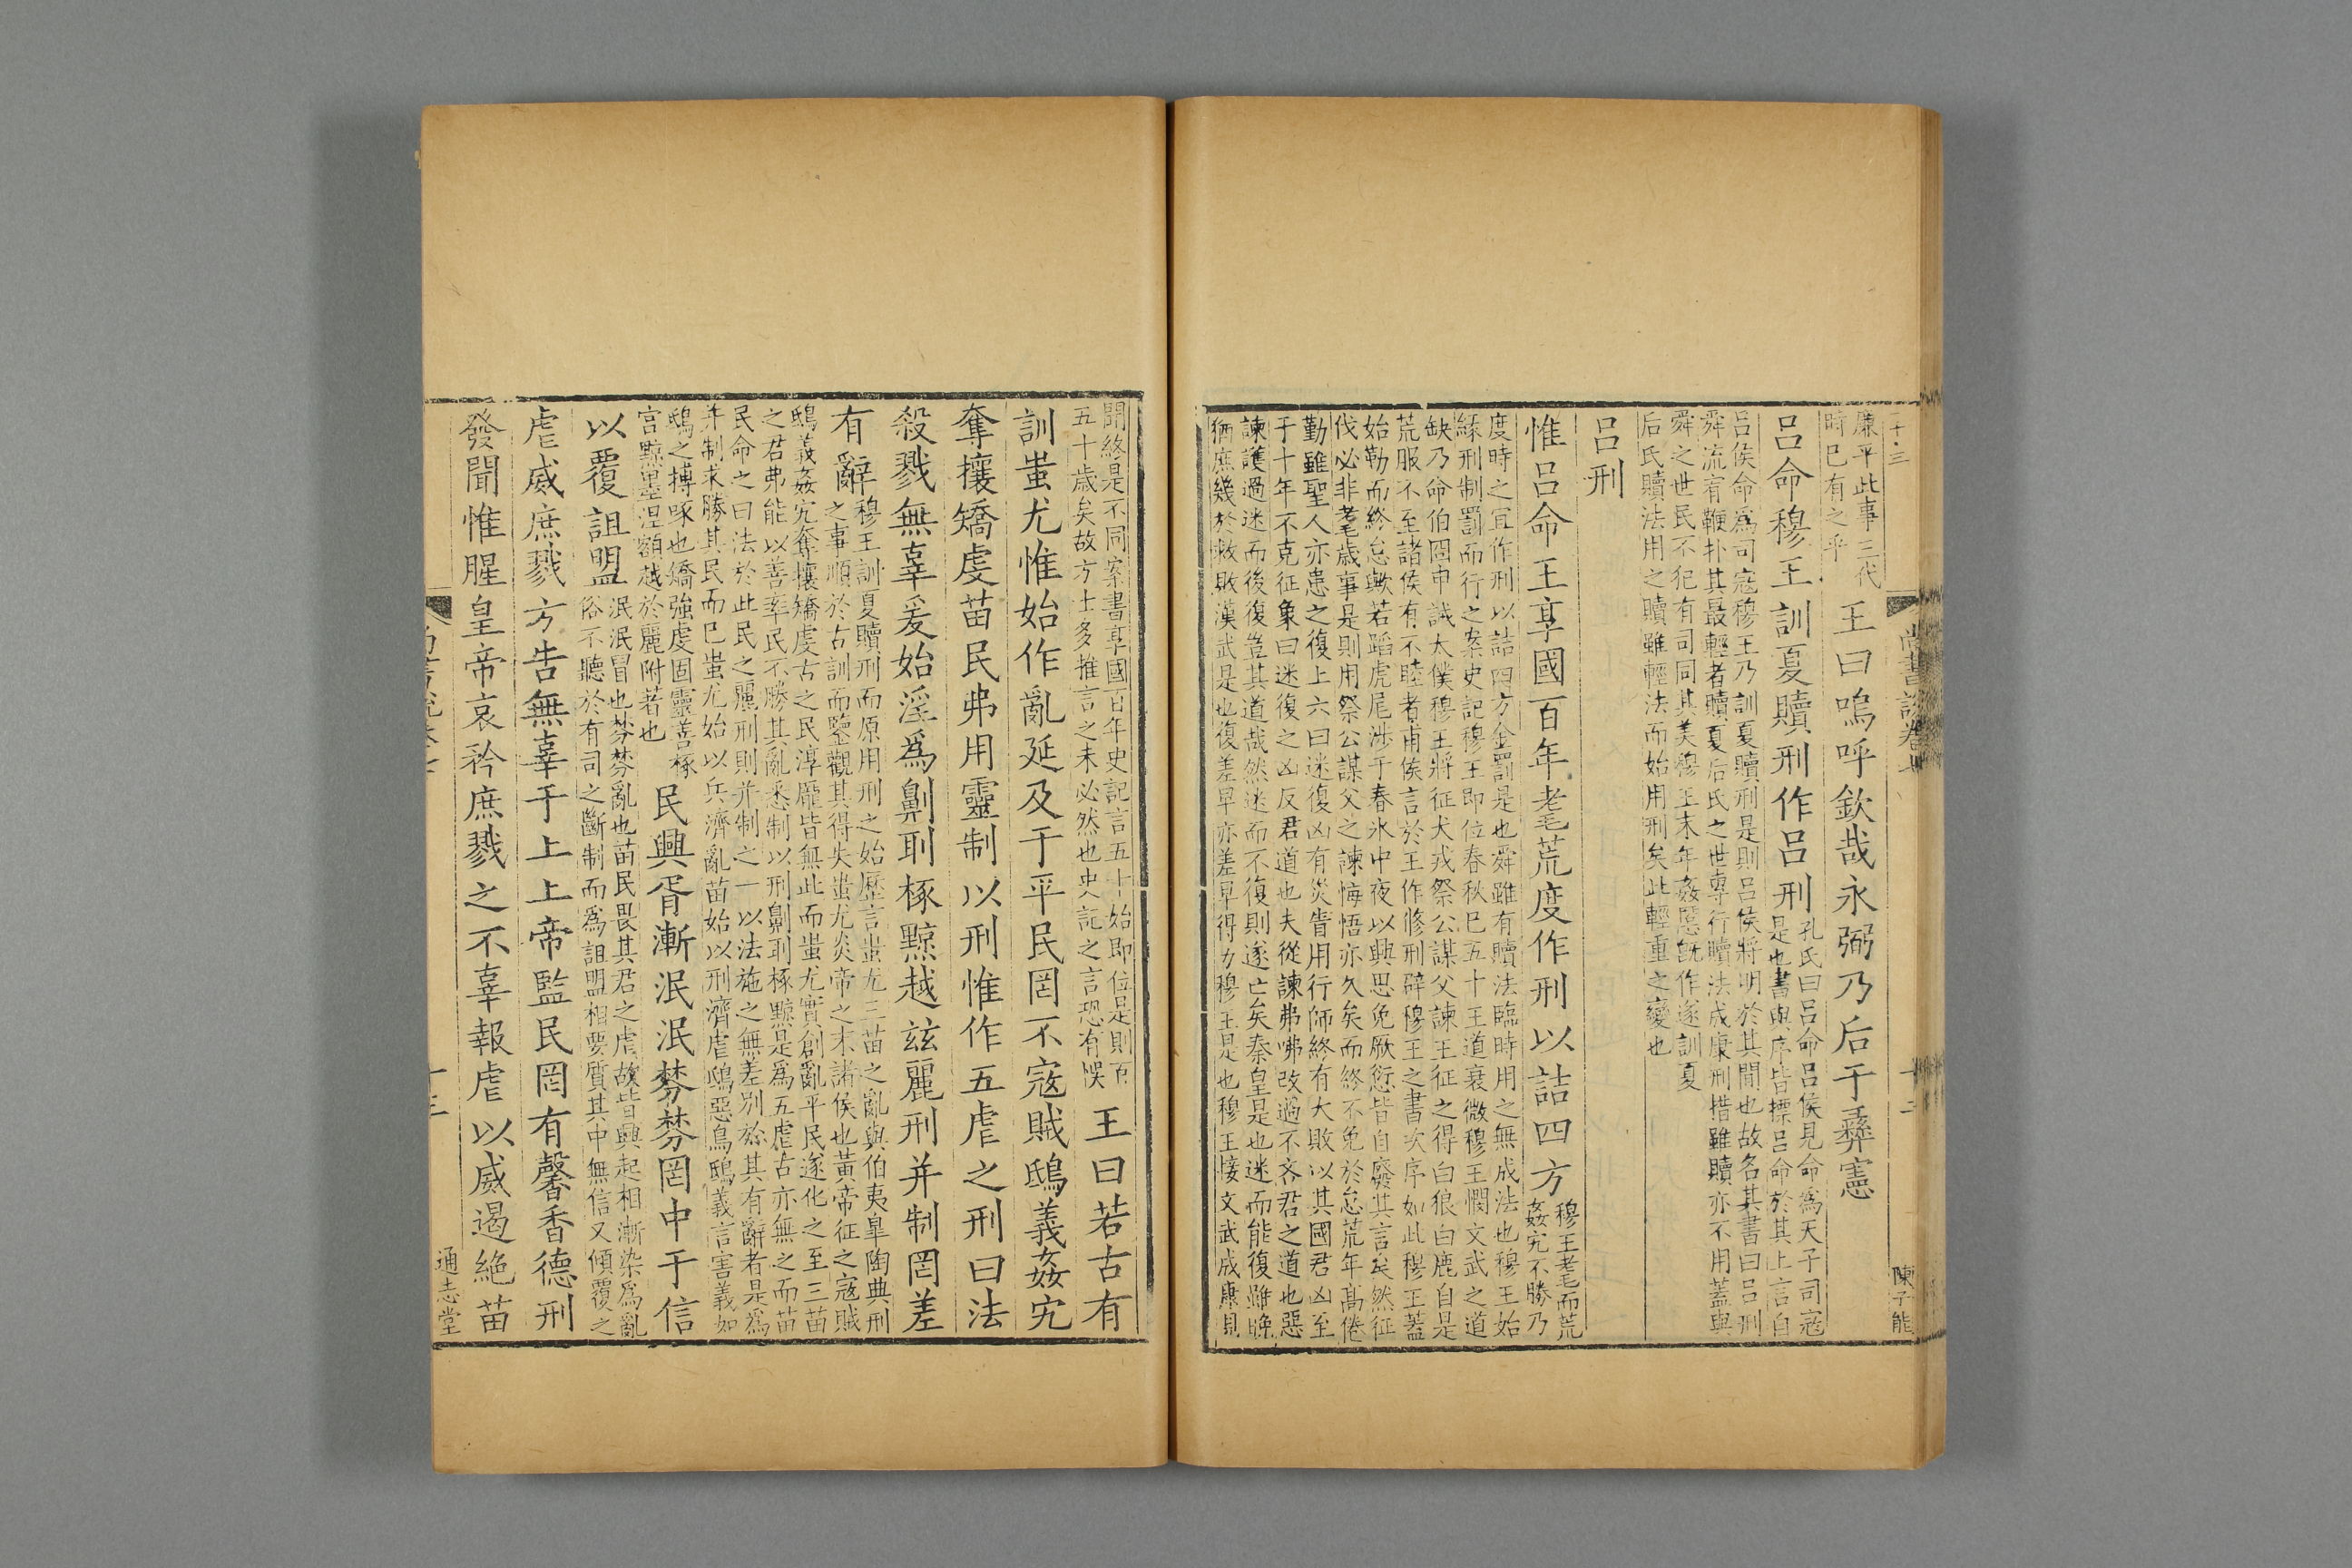 尚書說卷七
十二
陳子能
廉平此事三代
時已有之乎
王曰嗚呼欽哉永弼乃后于彞憲
呂命穆王訓夏贖刑作呂刑
孔氏曰呂命呂侯見命為天子司寇
是也書與序皆摽呂命於其上言自
呂侯命爲司寇穆王乃訓夏贖刑是則呂侯將明於其間也故名其書曰呂刑
舜流宥鞭扑其最輕者贖夏后氏之世專行贖法成康刑措雖贖亦不用蓋與
舜之世民不犯有司同其美穆王末年姦慝旣作遂訓夏
后氏贖法用之贖雖輕法而始用刑矣此輕重之變也
呂刑
惟呂命王享國百年耄荒度作刑以詰四方
穆王耄而荒
姦宄不勝乃
度時之宜作刑以詰四方金罰是也舜雖有贖法臨時用之無成法也穆王始
緣刑制罰而行之案史記穆王即位春秋已五十王道衰微穆王憫文武之道
缺乃命伯冏申誡太僕穆王將征犬戎祭公謀父諫王征之得白狼白鹿自是
荒服不至諸侯有不睦者甫侯言於王作修刑辟穆王之書次序如此穆王蓋
始勤而終怠歟若蹈虎尾涉于春氷中夜以興思免厥愆皆自廢其言矣然征
伐必非耄歲事是則用祭公謀父之諫悔悟亦久矣而終不免於怠荒年髙倦
勤雖聖人亦患之復上六曰迷復凶有災眚用行師終有大敗以其國君凶至
于十年不克征象曰迷復之凶反君道也夫從諫弗咈改過不吝君之道也惡
諫護過迷而後復豈其道哉然迷而不復則遂亡矣秦皇是也迷而能復雖晚
猶庶幾於救敗漢武是也復差早亦差早得力穆王是也穆王接文武成康見
聞終是不同案書享國百年史記言五十始即位是則百
五十歲矣故方士多推言之未必然也史記之言恐有悞
王曰若古有
訓蚩尤惟始作亂延及于平民罔不寇賊鴟義姦宄
奪攘矯虔苗民弗用靈制以刑惟作五虐之刑曰法
殺戮無辜爰始淫爲劓刵椓黥越兹麗刑并制罔差
有辭
穆王訓夏贖刑而原用刑之始歷言蚩尤三苗之亂與伯夷臯陶典刑
之事順於古訓而鑒觀其得失蚩尤炎帝之末諸侯也黃帝征之寇賊
鴟義姦宄奪攘矯虔古之民淳厖皆無此而蚩尤實創亂平民遂化之至三苗
之君弗能以善率民不勝其亂悉制以刑劓刵椓黥是爲五虐古亦無之而苗
民命之曰法於此民之麗刑則并制之一以法施之無差别於其有辭者是爲
并制求勝其民而已蚩尤始以兵濟亂苗始以刑濟虐鴟惡鳥鴟義言害義如
鴟之搏啄也矯強虔固靈善椓
宫黥墨涅額越於麗附著也
民興胥漸泯泯棼棼罔中于信
以覆詛盟
泯泯冒也棼棼亂也苗民畏其君之虐故皆興起相漸染爲亂
俗不聽於有司之斷制而爲詛盟相要質其中無信又傾覆之
虐威庶戮方告無辜于上上帝監民罔有馨香德刑
發聞惟腥皇帝哀矜庶戮之不辜報虐以威遏絶苗
十三
通志堂